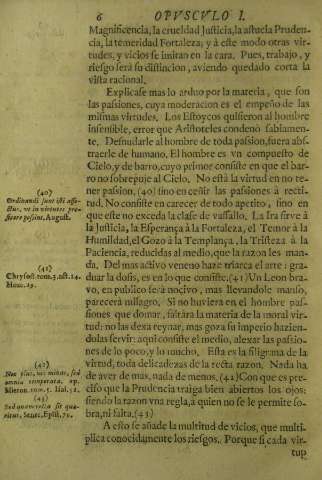 6 OPVSCVLO I.
Magnificencia, la crueldad Justicia, la astucia Pruden-
cia, la temeridad Fortaleza; y à este modo otras vir-
tudes, y vicios se imitan en la cara. Pues, trabajo, y
riesgo serà su distincion, aviendo quedado corta la
vista racional.
Explicase mas lo arduo por la materia, que son
las passiones, cuya moderacion es el empeño de las
mismas virtudes. Los Estoycos quisieron al hombre
insensible, error que Aristoteles condenò sabiamen-
te. Desnudarle al hombre de toda passion, fuera abs-
traerle de humano. El hombre es vn compuesto de
Cielo, y de barro, cuyo primor consiste en que el bar-
ro no sobrepoje al Cielo. No està la virtud en no te-
ner passion, (40) sino en ceñir las passiones à recti-
tud. No consiste en carecer de todo apetito, sino en
que este no exceda la clase de vassallo. La Ira sirve à
la Justicia, la Esperança à la Fortaleza, el Temor à la
Humildad, el Gozo à la Templança, la Tristeza à la
Paciencia, reducidas al medio, que la razon les man-
da. Del mas activo veneno haze triaca el arte: gra-
duar la dosis, es en lo que consiste. (41) Vn Leon bra-
vo, en publico serà nocivo, mas llevandole manso,
parecerà milagro. Si no huviera en el hombre pas-
siones que domar, faltàra la materia de la moral vir-
tud: no las dexa reynar, mas goza su imperio hazien-
dolas servir: aqui consiste el medio, alexar las passio-
nes de lo poco, y lo mucho. Esta es la filigrana de la
virtud, toda delicadezas de la recta razon. Nada ha
de aver de mas, nada de menos, (42) Con que es pre-
ciso que la Prudencia traiga bien abiertos los ojos:
siendo la razon vna regla, à quien no se le permite so-
bra, ni falta. (43)
A esto se añade la multitud de vicios, que multi-
plica conocidamente los riesgos. Porque si cada vir-
tup
(40)
Ordinandi sunt isti affe-
ctus, vt in virtutes pro-
ficere possint. August.
(41)
Chrysost. tom. 3. act. 14.
Hom. 29.
(42)
Nec plus, nec minus, sed
omnia temperata. ap.
Hieron. tom. 5. Isai. 52.
(43)
Senec. Epist. 71.